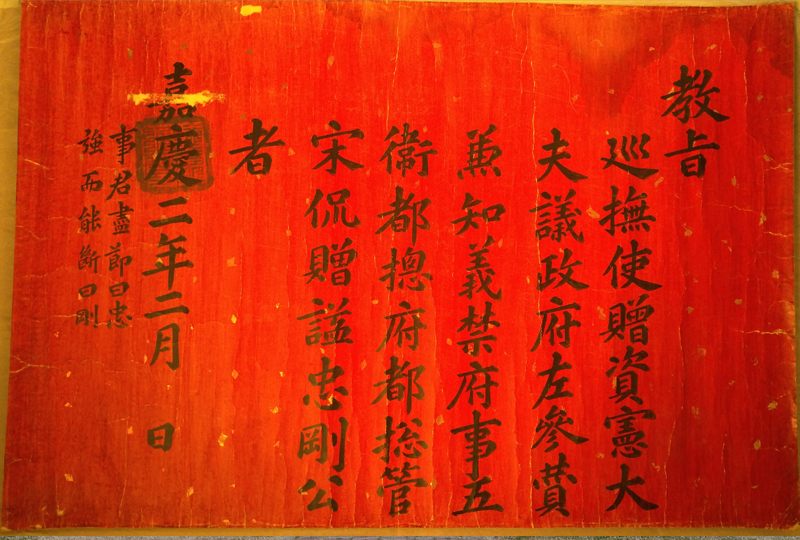 教旨
巡撫使贈資憲大
夫議政府左參贊
兼知義禁府事五
衛都摠府都摠管
宋侃贈諡忠剛公
者
嘉慶二年二月 日
事君盡節曰忠
強而能斷曰剛